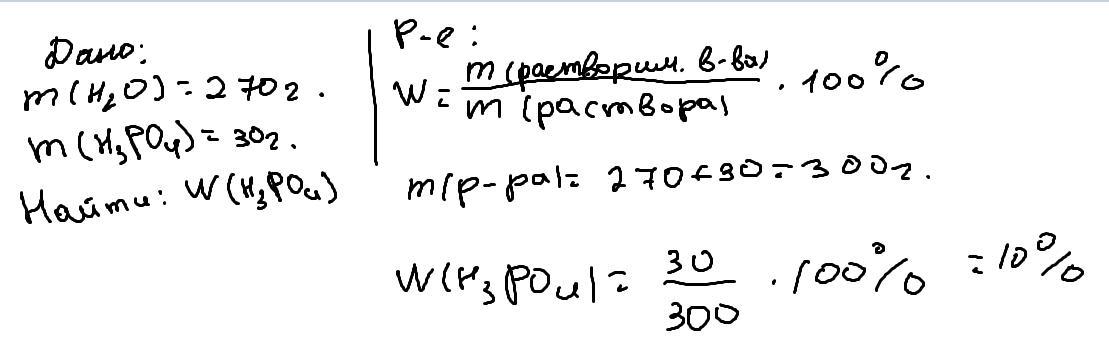 Дано:
m(H₂O) = 270г.
m(H₃PO₄) = 30г.
Найти: W(H₃PO₄)
Р-е:
W = m(растворим. в-ва) / m(раствора) · 100%
m(р-ра) = 270 + 30 = 300г.
W(H₃PO₄) = 30 / 300 · 100% = 10%